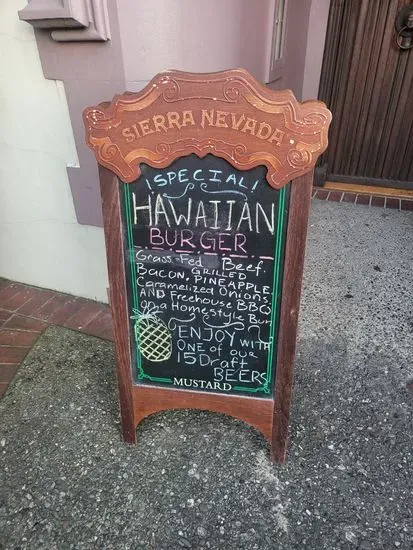 SIERRA NEVADA
¡SPECIAL!
HAWAIIAN
BURGER
Grass-Fed Beef,
BACON, GRILLED PINEAPPLE,
Caramelized Onions,
AND Freehouse BBQ
on a Homestyle Bun
ENJOY WITH
ONE of our
15 Draft
BEERS
MUSTARD